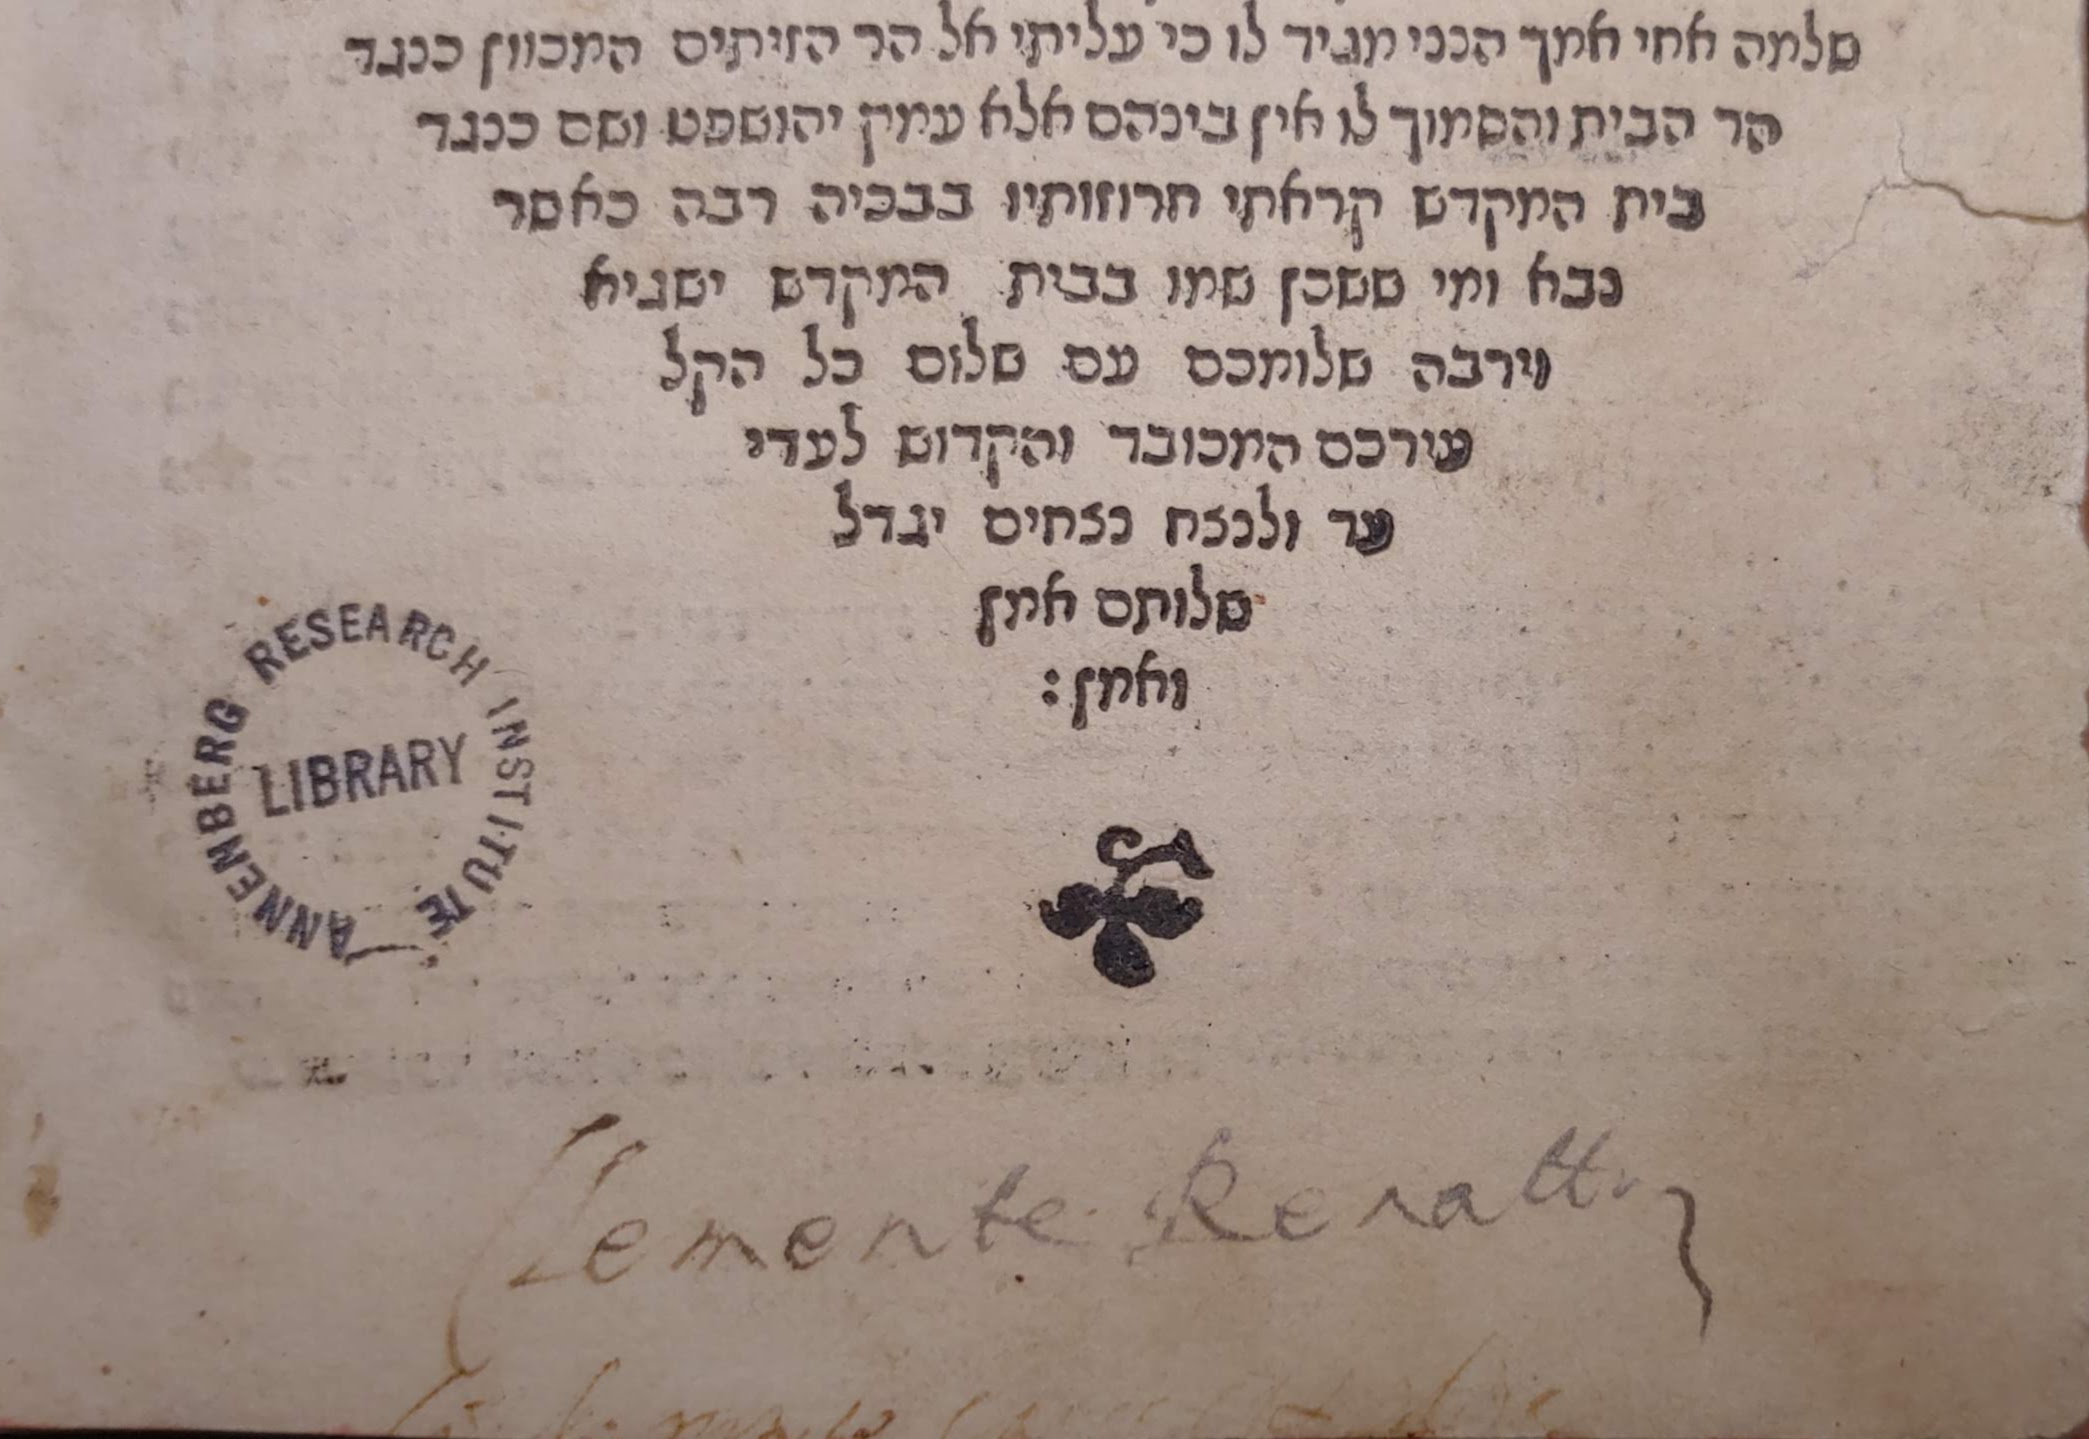 שלמה אחי אמך הנני מגיד לו כי עליתי אל הר הזיתים המכוון כנגד
הר הבית והסמוך לו אין ביניהם אלא עמק יהושפט ושם כנגד
בית המקדש קראתי חרוזותיו בבכיה רבה כאשר
נבא ומי ששכן שמו בבית המקדש ישגיא
וירבה שלומכם עם שלום כל הקל
עירכם המכובד והקדוש לעדי
עד ולנצח נצחים יגדל
שלותם אמן
ואמן:
ANNENBERG RESEARCH INSTITUTE
LIBRARY
Clemente Renatto